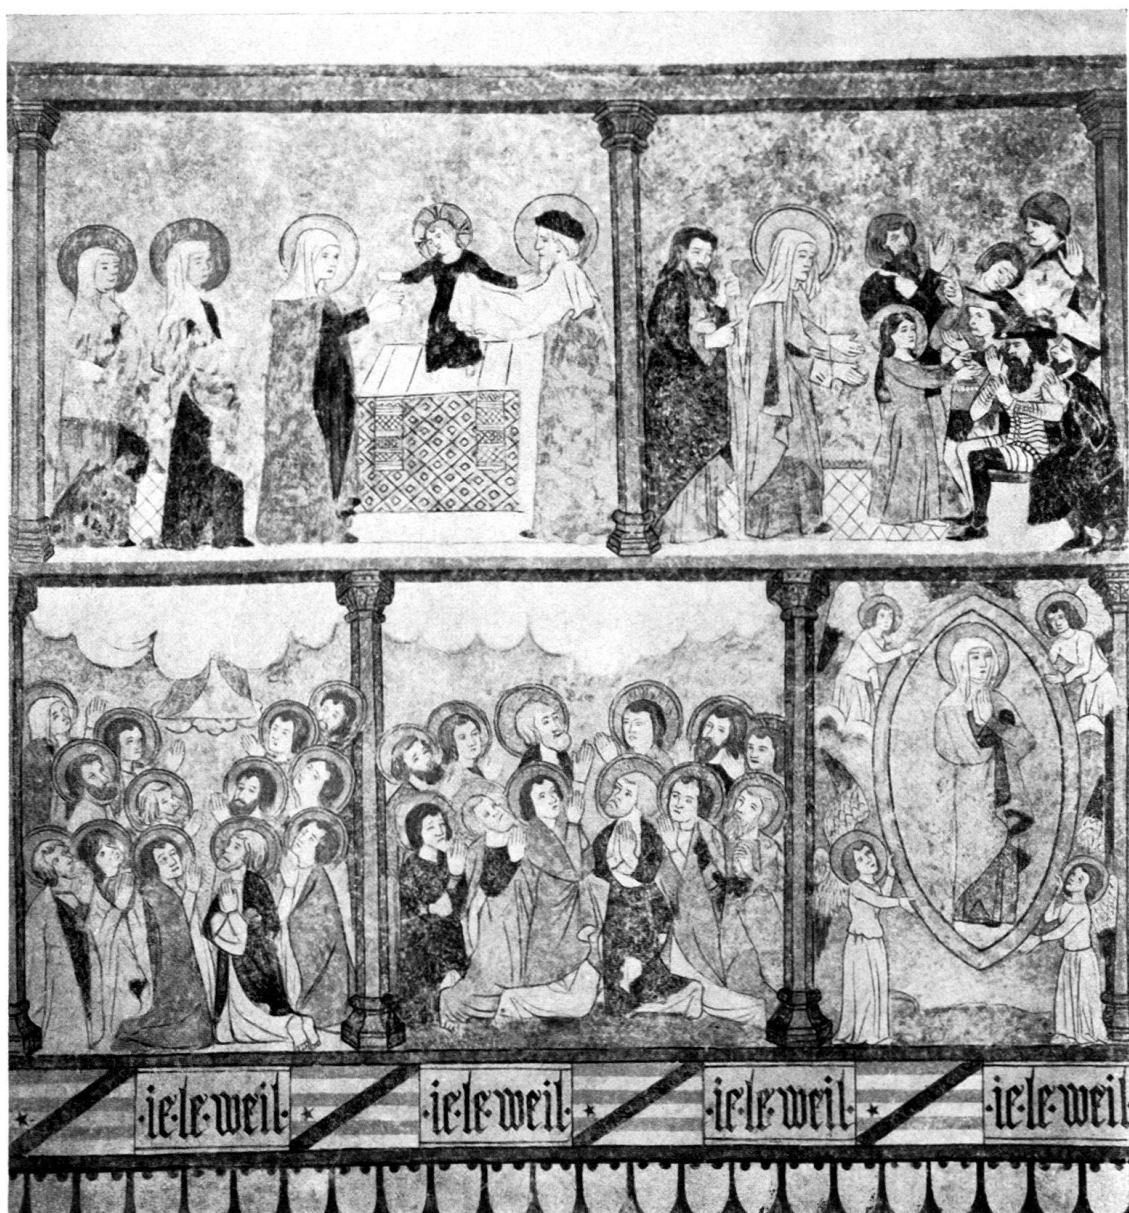 ·ie·le·weil· ·ie·le·weil· ·ie·le·weil· ·ie·le·weil·